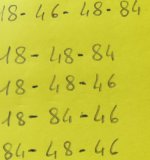 18-46-48-84
18-48-84
18-48-46
18-84-46
84-48-46